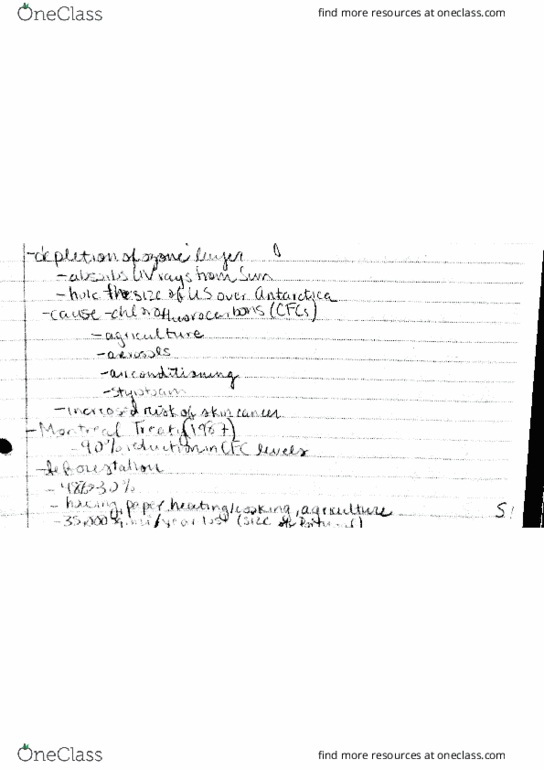 OneClass
find more resources at oneclass.com
-depletion of ozone layer
-absorbs UV rays from Sun
-hole the size of US over Antarctica
-cause -chlorofluorocarbons (CFCs)
-agriculture
-aerosols
-airconditioning
-styofoam
-increased risk of skin cancer
-Montreal Treaty (1987)
-90% reduction in CFC levels
-deforestation
-48%→30%
-housing, paper, heating/cooking, agriculture
-35,000 sq. mi/year lost (size of
OneClass
find more resources at oneclass.com